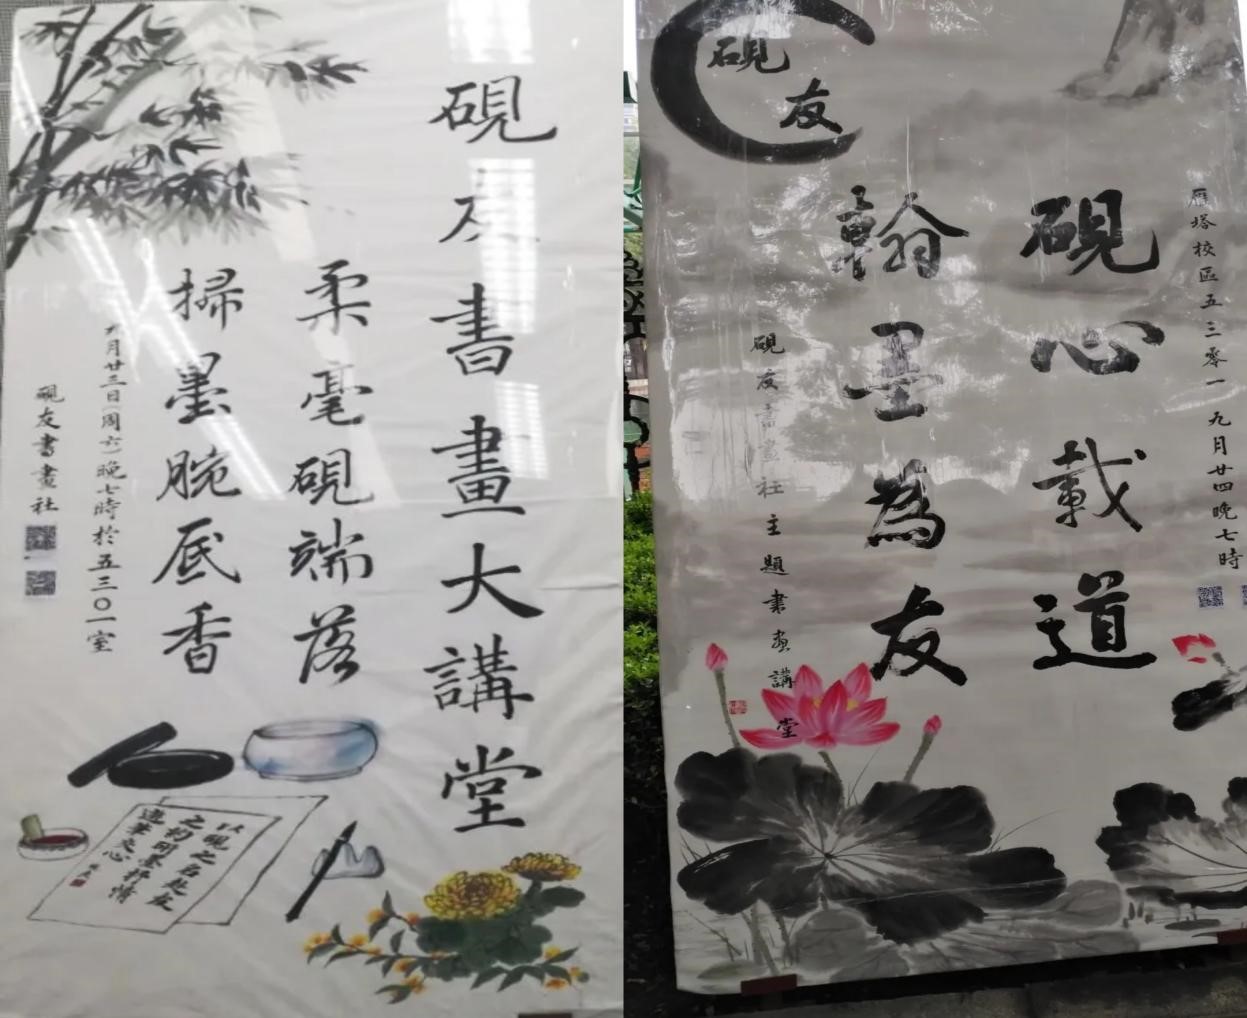 硯友書畫大講堂
柔毫硯端落
掃墨腕底香
九月廿三日(周六)晚七時於五三〇一室
硯友書畫社
以硯之名赴友
之約同墨抒情
連筆交心
硯友
雁塔校區五三零一 九月廿四晚七時
硯心載道
翰墨為友
硯友書畫社主題書畫講堂